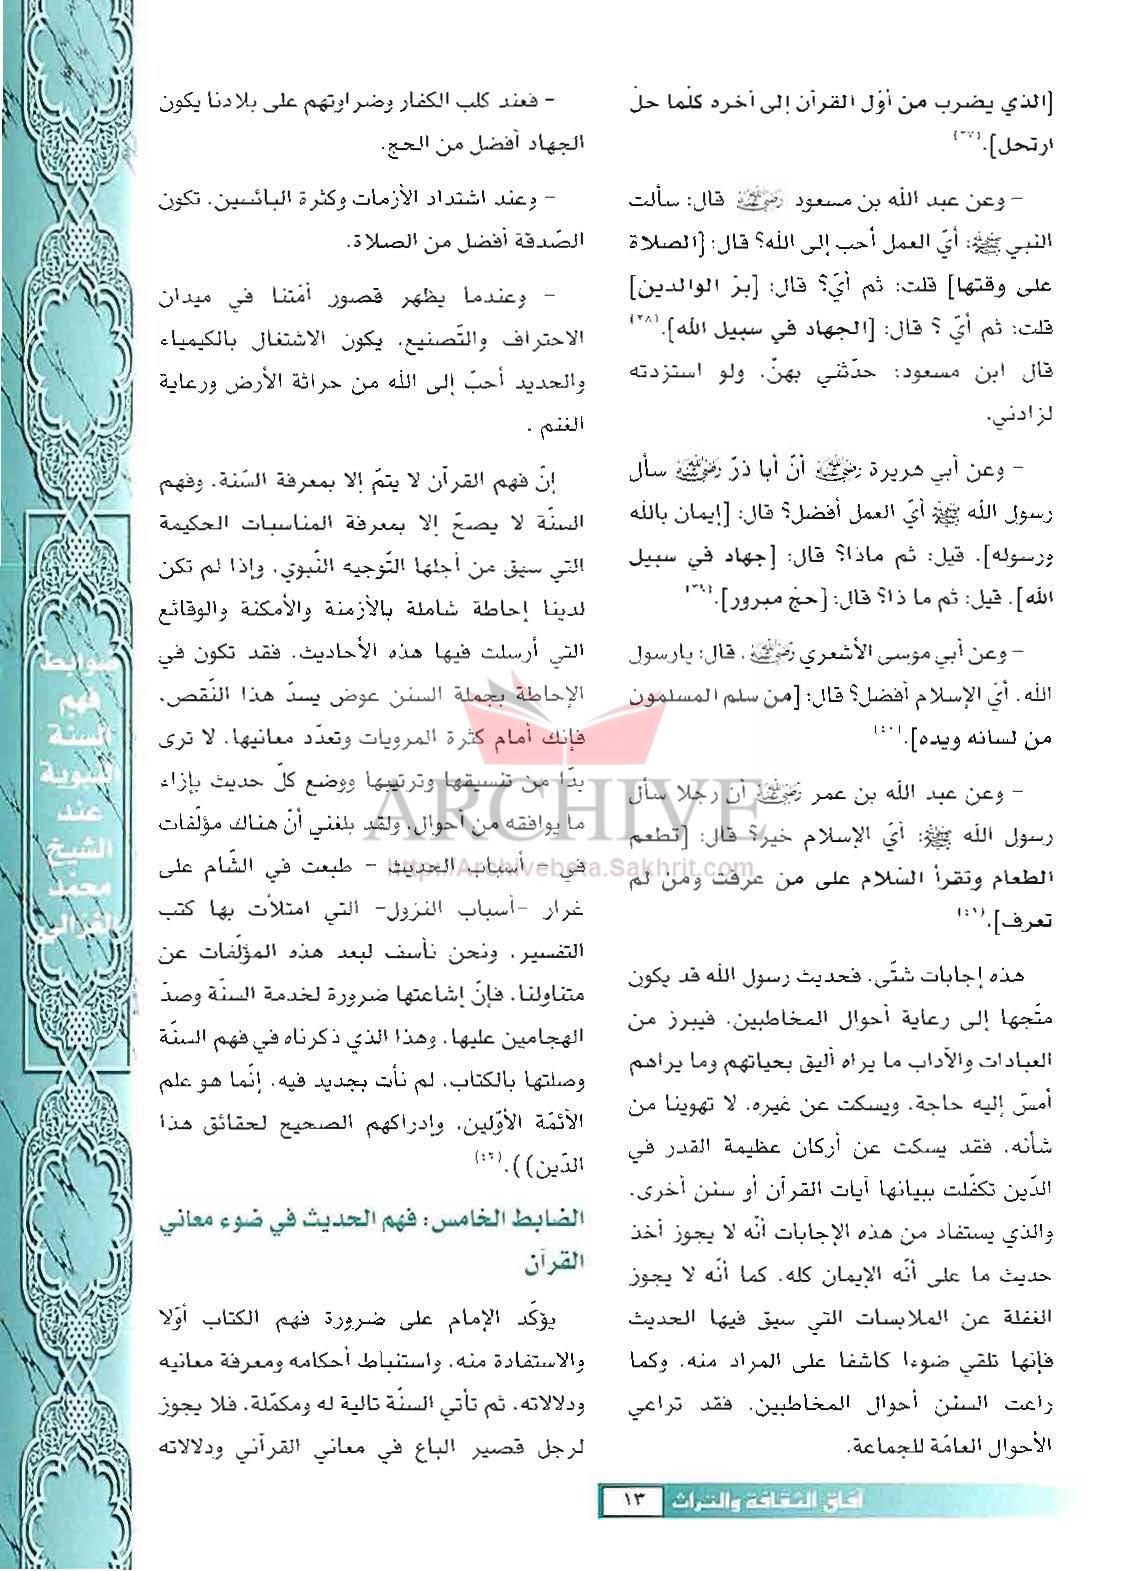 [الذي يضرب من أوّل القرآن إلى آخره كلّما حلّ
ارتحل].(٣٧)
– وعن عبد الله بن مسعود ﵁ قال: سألت
النبي ﷺ: أيّ العمل أحب إلى الله؟ قال: [الصلاة
على وقتها] قلت: ثم أيّ؟ قال: [برّ الوالدين]
قلت: ثم أيّ ؟ قال: [الجهاد في سبيل الله].(٣٨)
قال ابن مسعود: حدّثني بهنّ، ولو استزدته
لزادني.
– وعن أبي هريرة ﵁ أنّ أبا ذرّ ﵁ سأل
رسول الله ﷺ أيّ العمل أفضل؟ قال: [إيمان بالله
ورسوله]. قيل: ثم ماذا؟ قال: [جهاد في سبيل
الله]. قيل: ثم ما ذا؟ قال: [حج مبرور].(٣٩)
– وعن أبي موسى الأشعري ﵁ ، قال: يارسول
الله، أيّ الإسلام أفضل؟ قال: [من سلم المسلمون
من لسانه ويده].(٤٠)
– وعن عبد الله بن عمر ﵁ أن رجلا سأل
رسول الله ﷺ: أيّ الإسلام خير؟ قال: [تطعم
الطعام وتقرأ السّلام على من عرفت ومن لم
تعرف].(٤١)
هذه إجابات شتّى، فحديث رسول الله قد يكون
متّجها إلى رعاية أحوال المخاطبين، فيبرز من
العبادات والآداب ما يراه أليق بحياتهم وما يراهم
أمسّ إليه حاجة، ويسكت عن غيره، لا تهوينا من
شأنه، فقد يسكت عن أركان عظيمة القدر في
الدّين تكفّلت ببيانها آيات القرآن أو سنن أخرى،
والذي يستفاد من هذه الإجابات أنّه لا يجوز أخذ
حديث ما على أنّه الإيمان كله، كما أنّه لا يجوز
الغفلة عن الملابسات التي سيق فيها الحديث
فإنها تلقي ضوءا كاشفا على المراد منه، وكما
راعت السنن أحوال المخاطبين، فقد تراعي
الأحوال العامّة للجماعة.
– فعند كلب الكفار وضراوتهم على بلادنا يكون
الجهاد أفضل من الحج.
– وعند اشتداد الأزمات وكثرة البائسين، تكون
الصّدقة أفضل من الصلاة.
– وعندما يظهر قصور أمّتنا في ميدان
الاحتراف والتّصنيع، يكون الاشتغال بالكيمياء
والحديد أحبّ إلى الله من حراثة الأرض ورعاية
الغنم .
إنّ فهم القرآن لا يتمّ إلا بمعرفة السّنة، وفهم
السنّة لا يصحّ إلا بمعرفة المناسبات الحكيمة
التي سيق من أجلها التّوجيه النّبوي، وإذا لم تكن
لدينا إحاطة شاملة بالأزمنة والأمكنة والوقائع
التي أرسلت فيها هذه الأحاديث، فقد تكون في
الإحاطة بجملة السنن عوض يسدّ هذا النّقص،
فإنك أمام كثرة المرويات وتعدّد معانيها، لا ترى
بدّا من تنسيقها وترتيبها ووضع كلّ حديث بإزاء
ما يوافقه من أحوال، ولقد بلغني أنّ هناك مؤلّفات
في – أسباب الحديث – طبعت في الشّام على
غرار –أسباب النزول– التي امتلأت بها كتب
التفسير، ونحن نأسف لبعد هذه المؤلّفات عن
متناولنا، فإنّ إشاعتها ضرورة لخدمة السنّة وصدّ
الهجامين عليها، وهذا الذي ذكرناه في فهم السنّة
وصلتها بالكتاب، لم نأت بجديد فيه، إنّما هو علم
الأئمّة الأوّلين، وإدراكهم الصحيح لحقائق هذا
الدّين)).(٤٢)
الضابط الخامس: فهم الحديث في ضوء معاني
القرآن
يؤكّد الإمام على ضرورة فهم الكتاب أوّلا
والاستفادة منه، واستنباط أحكامه ومعرفة معانيه
ودلالاته، ثم تأتي السنّة تالية له ومكمّلة، فلا يجوز
لرجل قصير الباع في معاني القرآني ودلالاته
ضوابط
فهم
السنة
النبوية
عند
الشيخ
محمّد
الغزالي
ARCHIVE
http://Archivebeta.Sakhrit.com
آفاق الثقافة والتراث
١٣